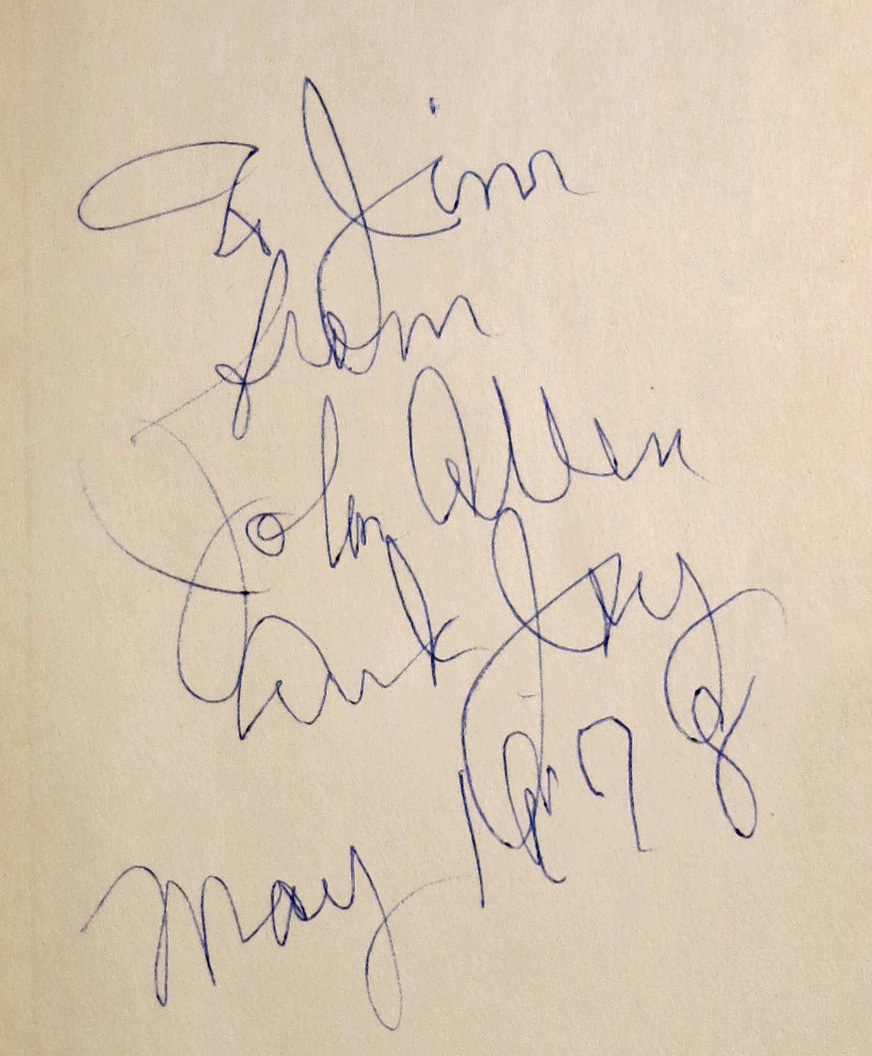 To Jim
from
John Allen
Park Jay
May 1978